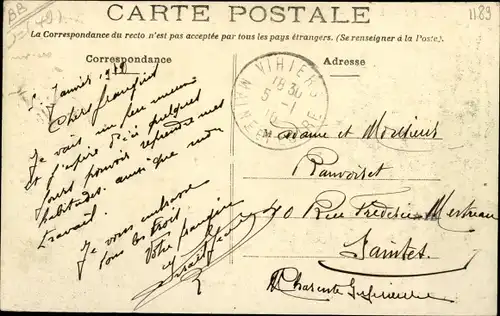 CARTE POSTALE
La Correspondance du recto n'est pas acceptée par tous les pays étrangers. (Se renseigner à la Poste).
1189
Correspondance
Adresse
5 Janvier
Chers
Je vais un peu mieux
et j'espère d'ici quelques
jours pouvoir reprendre mes
habitudes ainsi que mon
travail.
Je vous embrasse
tous les trois
Votre
VIHIERS
18 30
5 -1
MAINE ET LOIRE
Madame et Monsieur
40 Rue Frédéric Mestreau
Saintes
Charente Inférieure